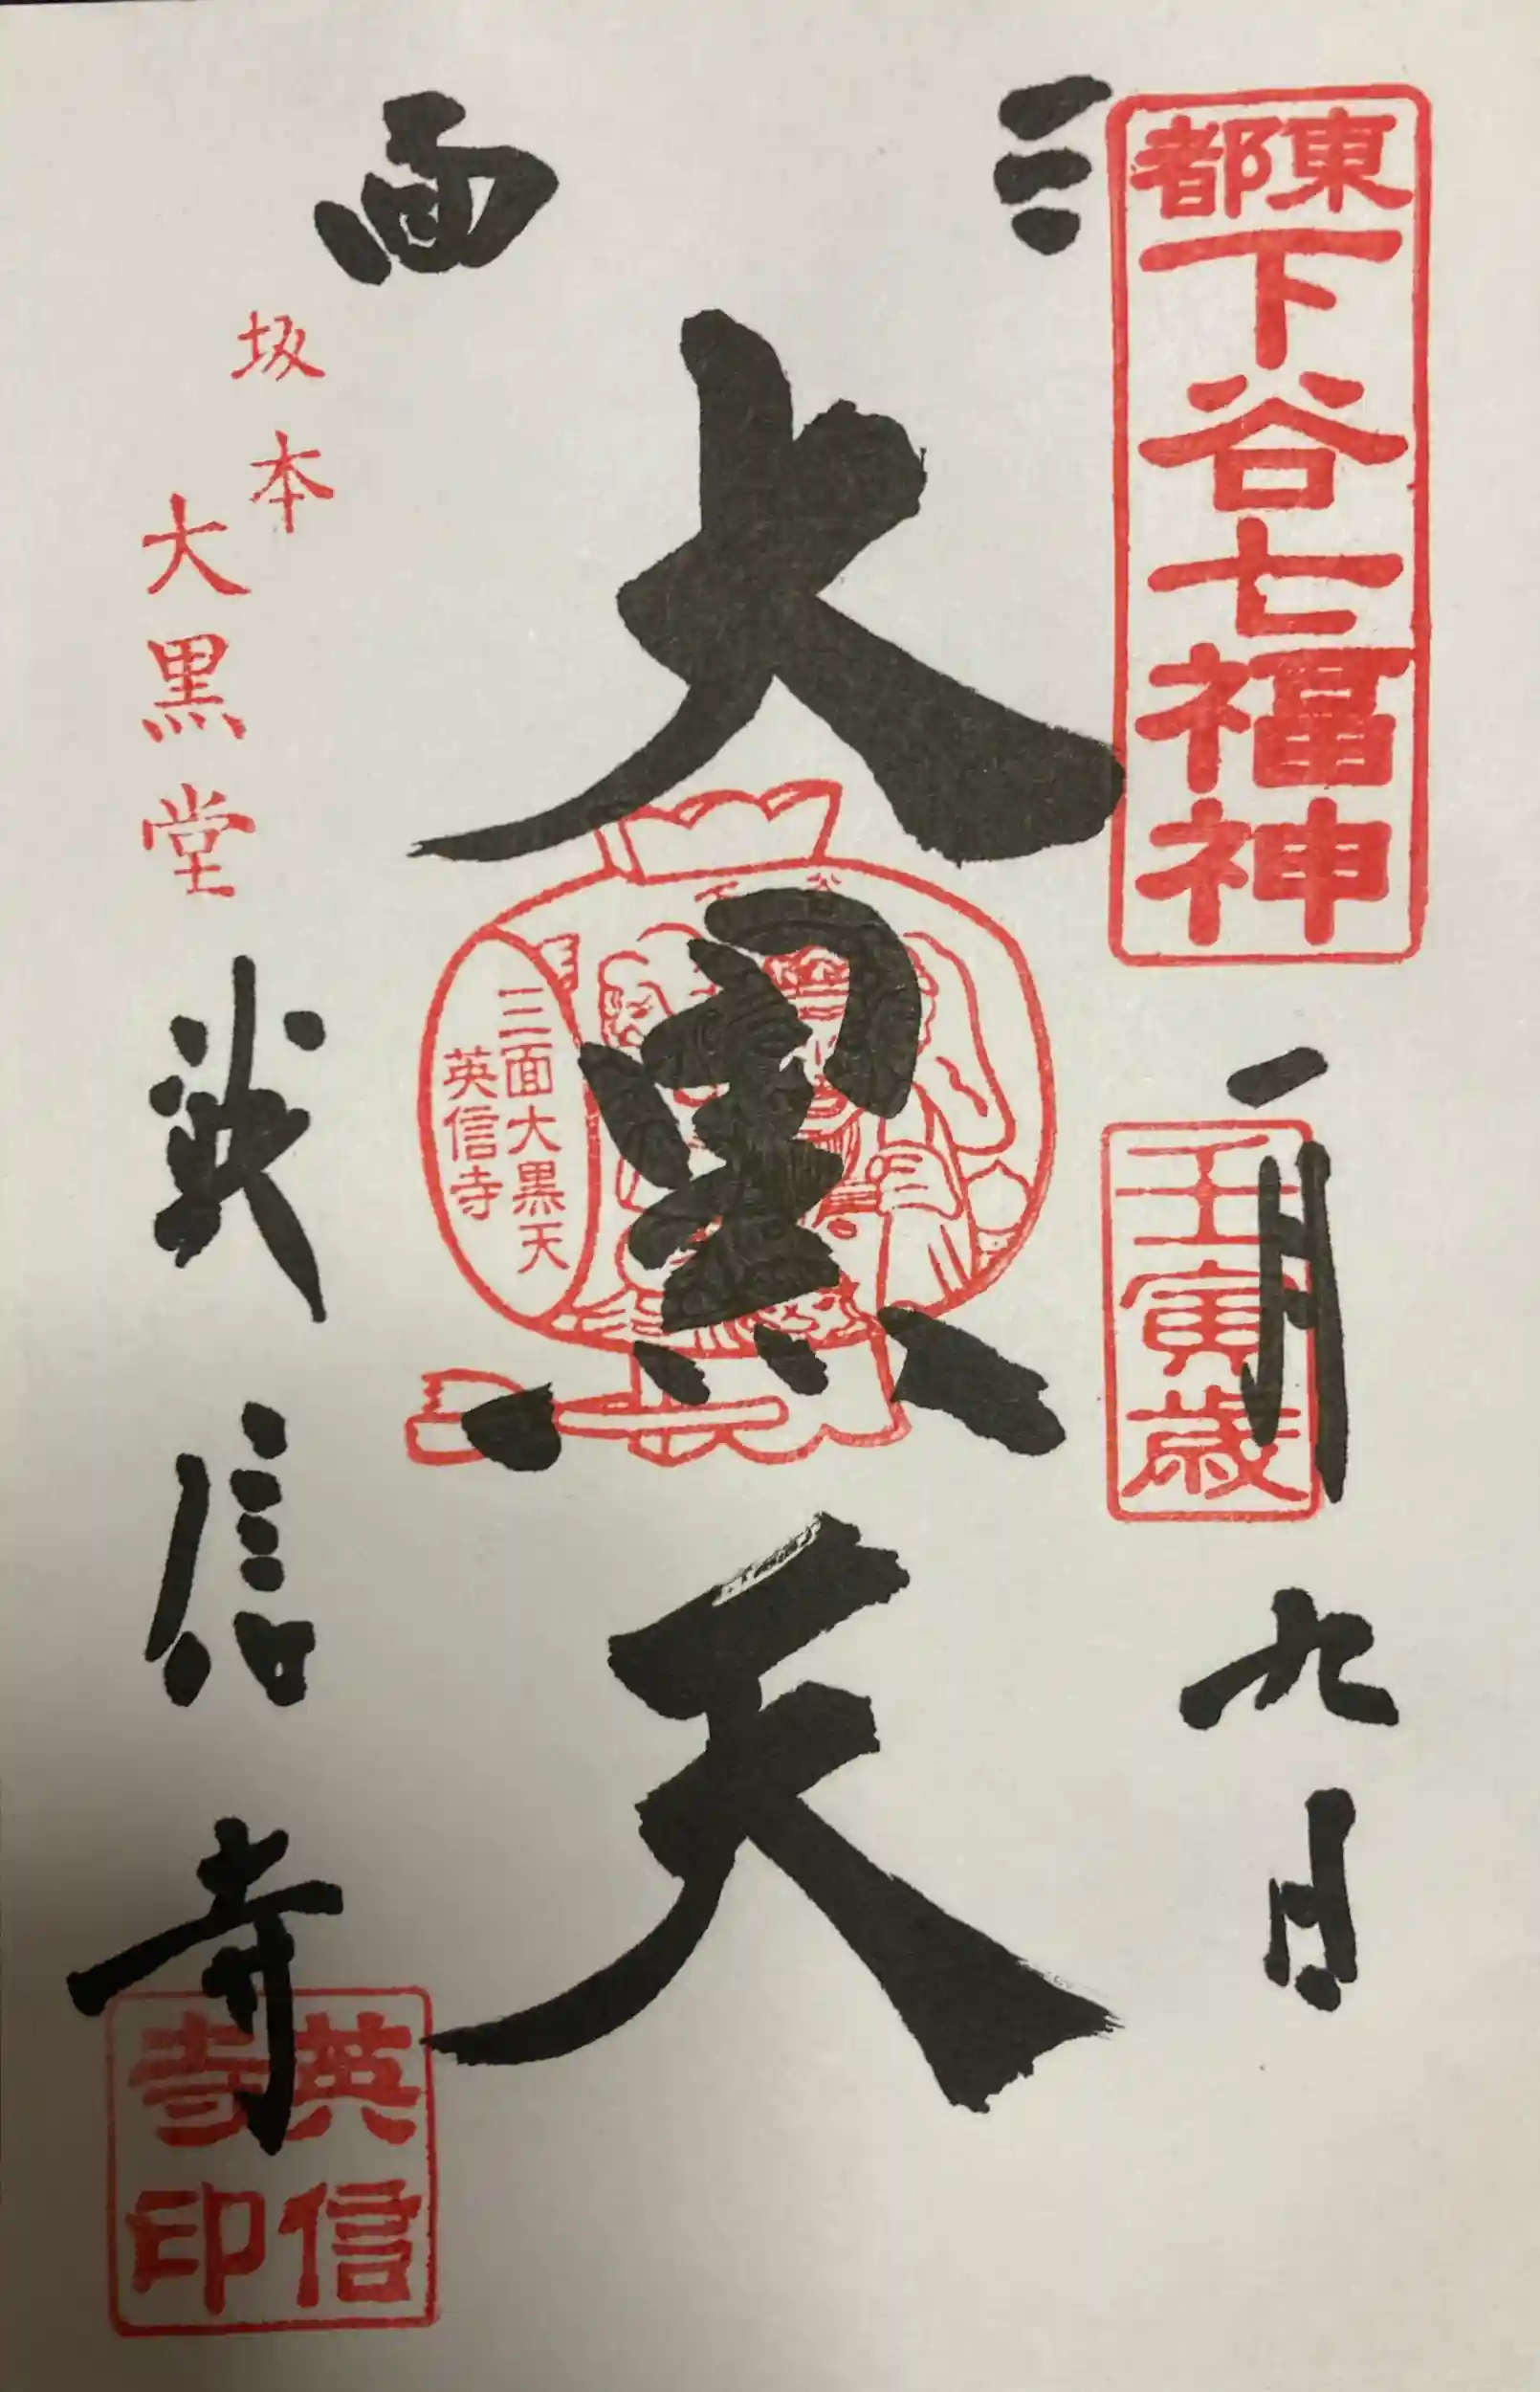 東都
下谷七福神
三面
大黒天
一月九日
壬寅歳
下谷
三面大黒天
英信寺
坂本
大黒堂
英信寺
英信寺印